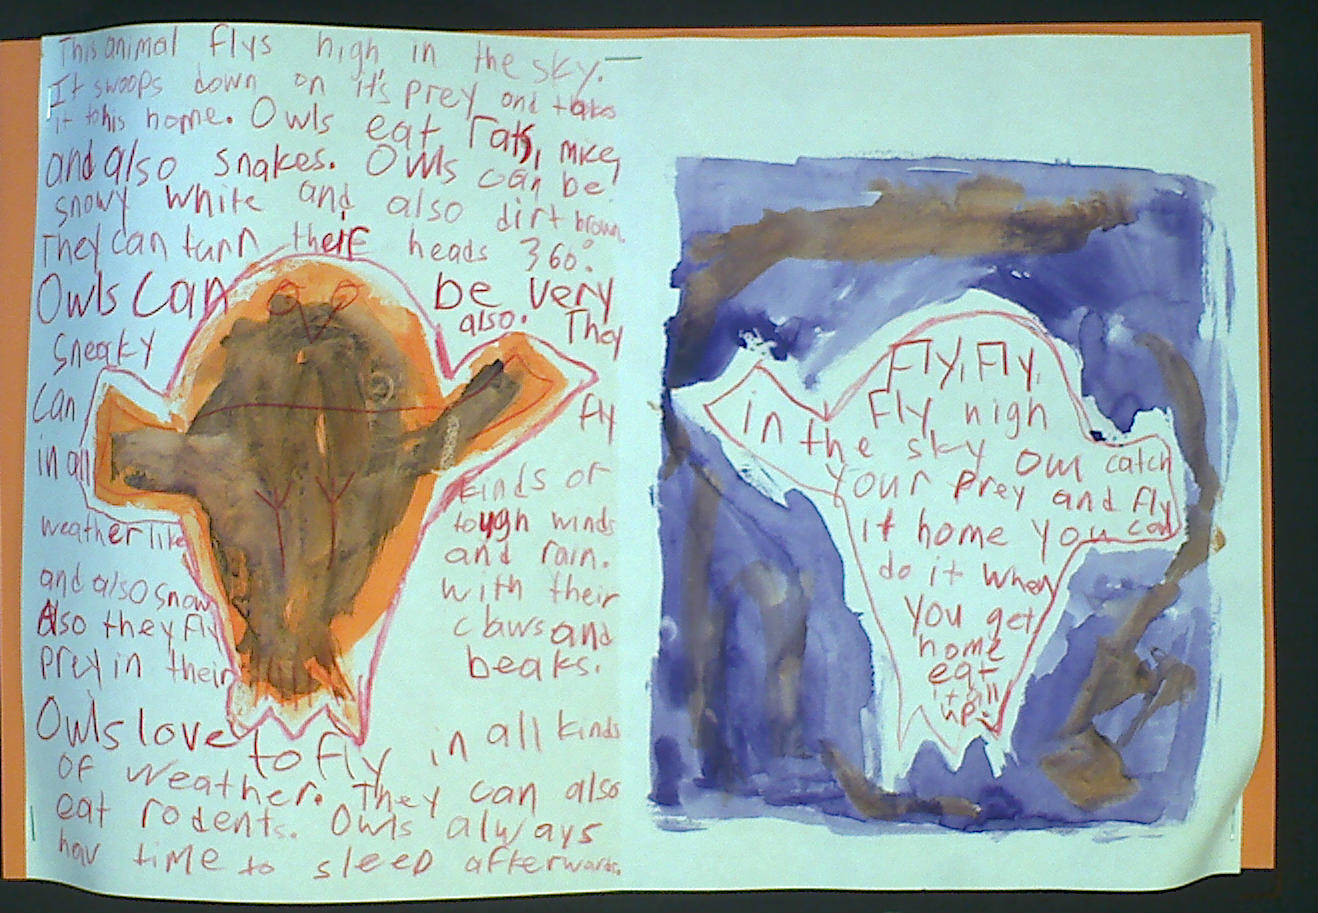 This animal flys high in the sky.
It swoops down on it's prey and takes
it to his home. Owls eat rats, mice,
and also snakes. Owls can be
snowy white and also dirt brown.
They can turn their heads 360°.
Owls can be very
sneaky also. They
can fly
in all kinds of
weather like tough winds
and rain.
and also snow with their
Also they fly claws and
prey in their beaks.
Owls love to fly in all kinds
of weather. They can also
eat rodents. Owls always
hav time to sleep afterwards.
Fly, Fly,
Fly high
in the sky owl catch
your prey and fly
it home you can
do it when
you get
home
eat
it all
up.